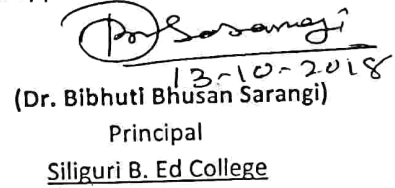 Sarangi
13-10-2018
(Dr. Bibhuti Bhusan Sarangi)
Principal
Siliguri B. Ed College